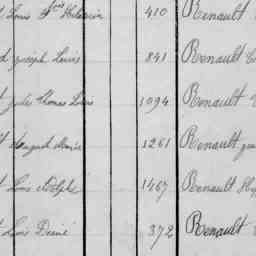 Louis 410 Renault
Joseph Louis 841 Renault
Jules Thomas Louis 1094 Renault
August Marie 1261 Renault
Louis Adolphe 1467 Renault Hyp
Louis Désiré 372 Renault